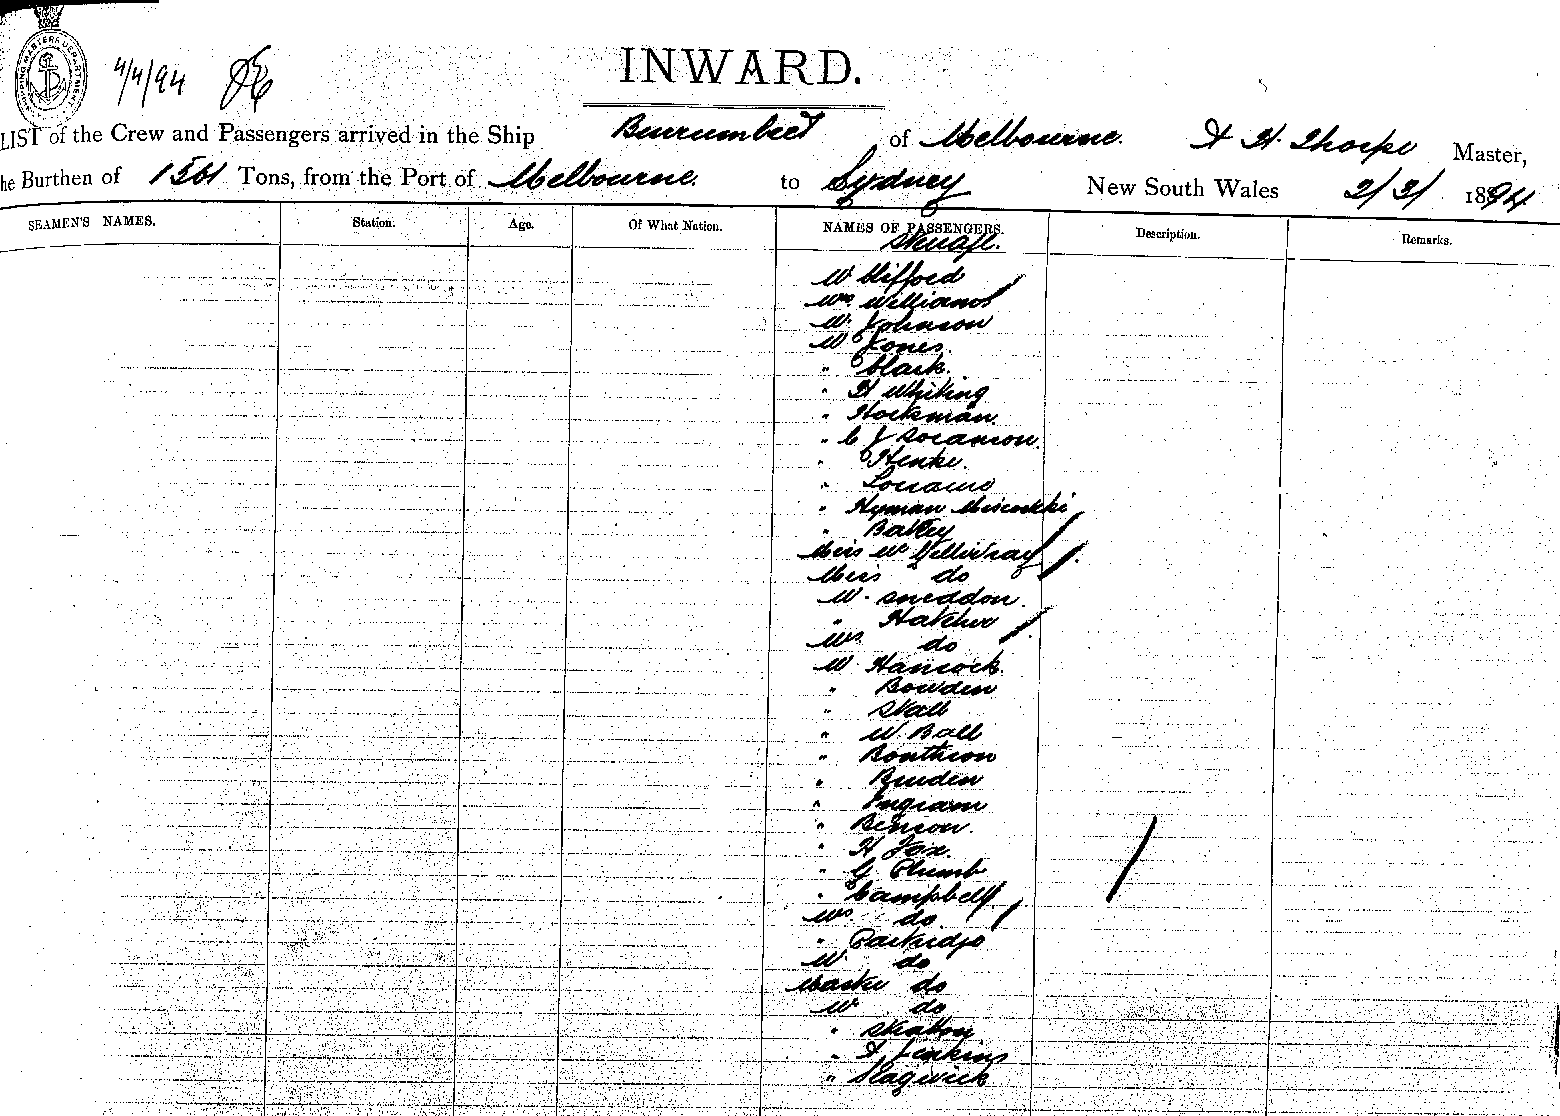 SHIPPING MASTER'S DEPARTMENT
4/4/94
INWARD.
LIST of the Crew and Passengers arrived in the Ship Burrumbeet of Melbourne. F H. Thorpe Master,
he Burthen of 1561 Tons, from the Port of Melbourne. to Sydney New South Wales 2/2/ 1894
SEAMEN'S NAMES. Station. Age. Of What Nation. NAMES OF PASSENGERS. Description. Remarks.
Steerage.
Mr Clifford
Mrs Williams
Mr Johnson
Mr Jones
" Clark.
" H Whiting
" Hockman.
" C J
" Henke.
" Lorraine
" Hyman
" Batey
Miss McGillivray
Miss do
Mr Sneddon
" Hatcher
Mrs do
Mr Hancock
" Bowden
" Stall
" W. Ball
" Bonthron
" Burden
" Ingram
" Benson.
" H Fox.
" G Plumb
" Campbell
Mrs do
" Partridge
Mr do
Master do
Mr do
"
" F Jenkins
" Sladgwick